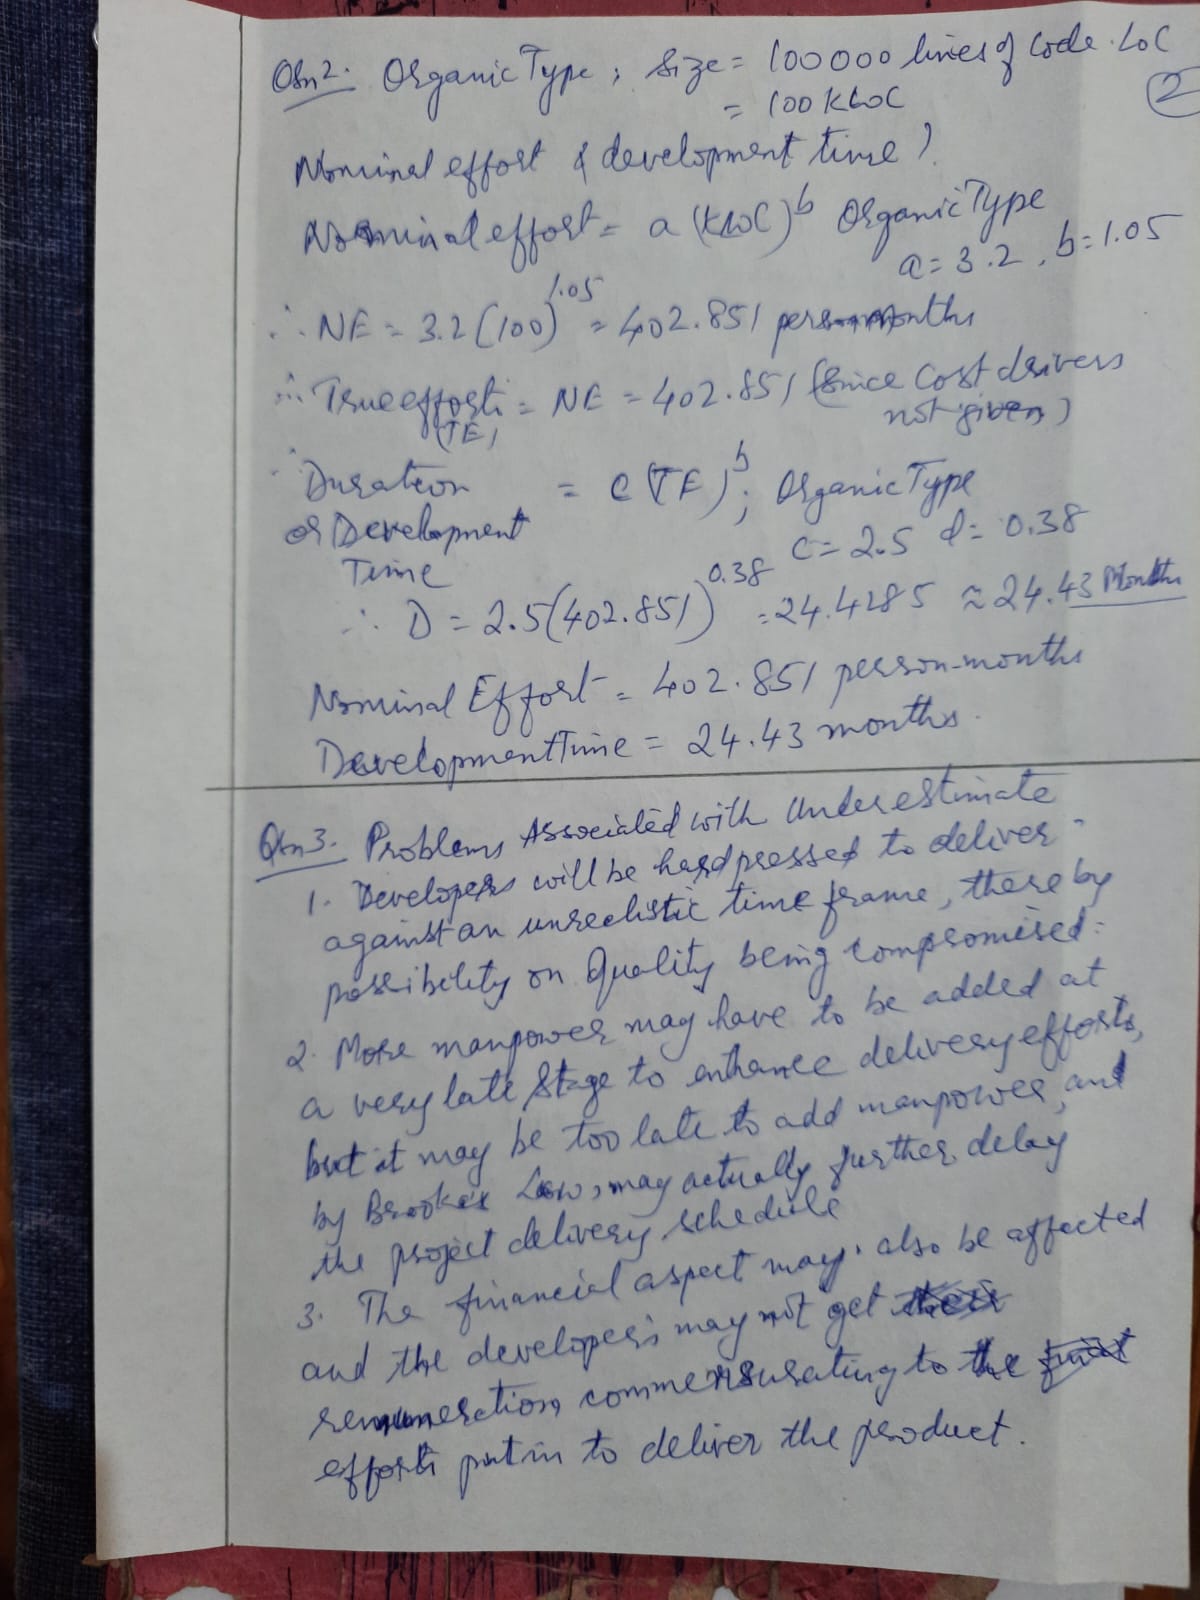 Qsn 2. Organic Type; Size = 100000 lines of Code. LOC
= 100 KLOC
②
Nominal effort & development time?
Nominal effort = a (KLOC)^b Organic Type
a = 3.2, b = 1.05
∴ NE = 3.2 (100)^1.05 = 402.851 person-months
∴ True effort = NE = 402.851 (Since Cost drivers
(TE) not given)
∴ Duration = C (TE)^b; Organic Type
or Development C = 2.5 d = 0.38
Time
∴ D = 2.5(402.851)^0.38 = 24.4285 ≈ 24.43 Months
Nominal Effort = 402.851 person-months
Development Time = 24.43 months.
Qsn 3. Problems Associated with Underestimate
1. Developers will be hard pressed to deliver
against an unrealistic time frame, there by
possibility on Quality being compromised.
2. More manpower may have to be added at
a very late Stage to enhance delivery efforts,
but it may be too late to add manpower, and
by Brooke's Law, may actually further delay
the project delivery schedule
3. The financial aspect may also be affected
and the developers may not get
remuneration commensurating to the
efforts put in to deliver the product.